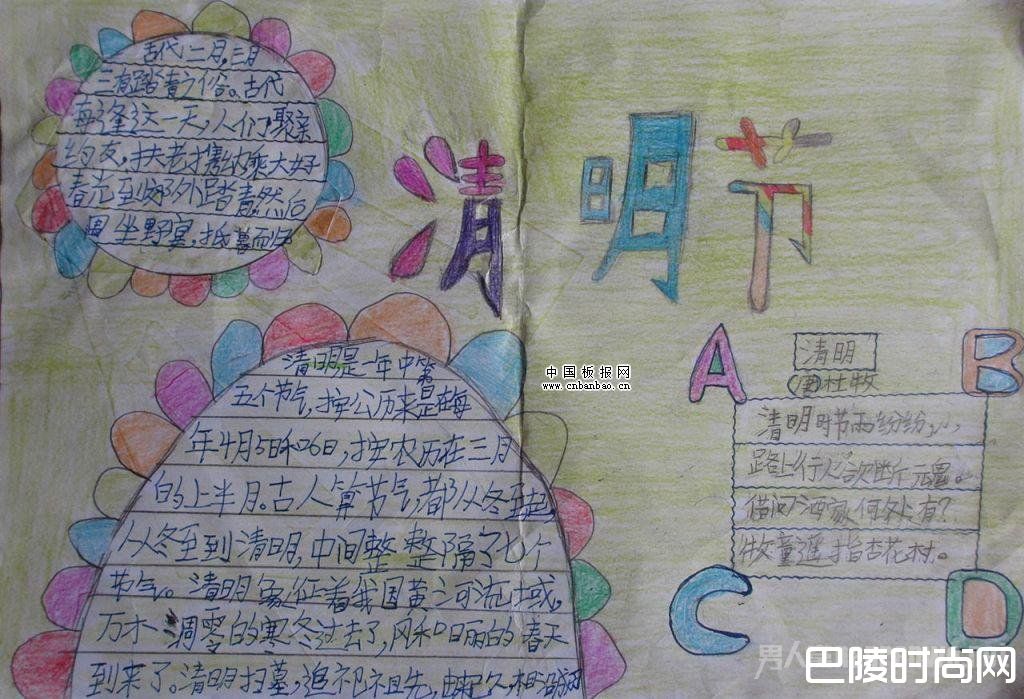 古代二月,三月
三有踏青之俗。古代
每逢这一天,人们聚亲
约友,扶老携幼,乘大好
春光到郊外踏青,然后
围坐野宴,抵暮而归
清明节
清明是一年中第
五个节气,按公历来是在每
年4月5日和6日,按农历在三月
的上半月。古人算节气,都从冬至起,
从冬至到清明,中间整整隔了七个
节气。清明象征着我国黄河流域,
万木凋零的寒冬过去了,风和日丽的春天
到来了。清明扫墓,追祀祖先,由起久,相沿
中国板报网
www.cnbanbao.cn
A
B
清明
杜牧
清明时节雨纷纷,
路上行人欲断魂。
借问酒家何处有?
牧童遥指杏花村。
C
D
男人
巴陵时尚网